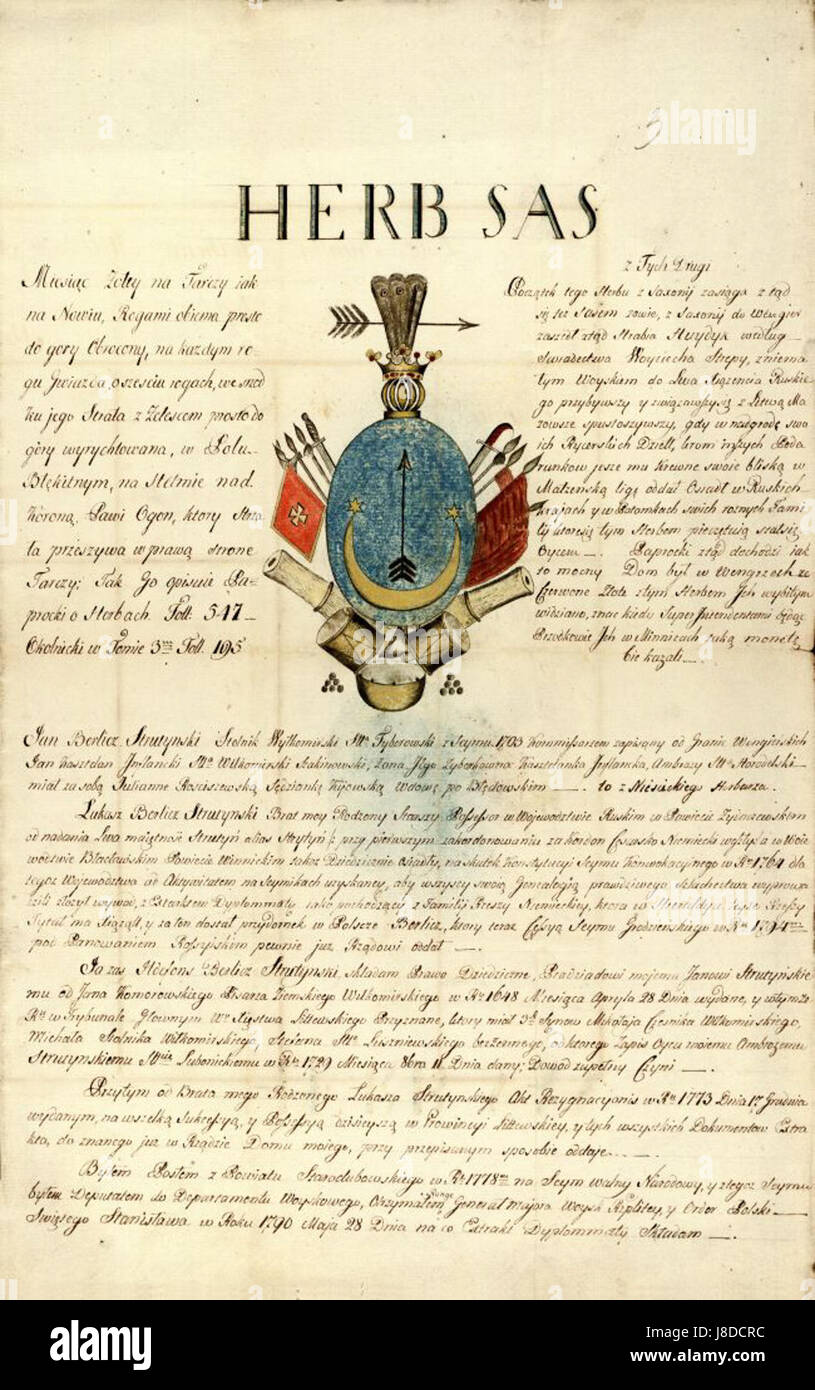 HERB SAS
Miesiąc Zołty na Tarczy iak
na Nowiu, Rogami obiema prosto
do gory Obrocony, na każdym ro
gu Gwiazda, o sześciu rogach, we srzod
ku jego Strzała z Zelescem prosto do
góry wyrychtowana, w Polu
Błękitnym, na Hełmie nad
Koroną Pawi Ogon, ktory Strza
ła przeszywa w prawą stronę
Tarczy; Tak Go opisuie Pa-
procki o Herbach. Foll. 547
Okolnicki w Tomie 3 Foll. 195
z Tych Drugi
Początek tego Herbu z Saxonij zasiąga ztąd
się też Sasem zowie, z Saxonij do Węgier
zaszedł ztąd Hrabia Huydyk według
Swiadectwa Woyciecha Strepy, z niema
łym Woyskiem do Lwa Xiązencia Ruskie
go przybywszy y związawszy się z Litwą Ma
zowsze spustoszywszy, gdy w nadgrodę swo
ich Rycerskich Dzieł, krom inszych Poda
runkow jesze mu krewne swoie bliską w
Małzenską ligę oddał Osiadł w Ruskich
krajach y w Potomkach swich roznych Fami
lij ktore się tym Herbem pieczętuią stał się
Oycem —. Paprocki ztąd dochodzi iak
to mocny Dom był w Wengrzech ze
Czerwone Złote z tym Herbem Ich wybitym
widziano, znac kiedy Super Intendentami będąc
Przodkowie Ich w Minnicach taką monetę
bic kazali —.
Jan Berlicz Strutynski Stolnik Wiłkomirski Stta Tyborowski z Seymu 1703 Kommissarzem zapisany od Granic Wengierskich
Jan Kasztelan Inflancki Stta Wiłkomirski Żona Jego Zyberkowna Kasztelanka Inflancka, Ambrozy Stta
miał za sobą Juliannę Rosciszewską Sędziankę Kijowską Wdowę po Błędowskim —. to z Niesieckiego Herbarza.
Łukasz Berlicz Strutynski Brat moy Rodzony Starszy Possessor w Wojewodztwie Ruskim w Powiecie Zydaczewskim
od nadania Lwa maiętnose Strutyn alias Strytyn przy pierwszym zakordonowaniu za Kordon Cesarsko Niemiecki wzięty, a w Woie
wodztwie Bracławskim Powiecie Winnickim takoz Dziedzicznie osiadły, na skutek Konstytucyi Seymu Konwokacyinego w Rku 1764 dla
tegoz Wojewodztwa od Antywitatem na Seymikach uzyskaney, aby wszyscy swoią Genealogią prawdziwego Szlachectwa wyprowa
dzili złozył wywod, z Extraktem Dyplommaty iako pochodzący z Familij Rzeszy Niemieckiey, ktora w
Tytuł ma Xiąząt, y za ten dostał przydomek w Polszcze Berlicz, ktory teraz Cessyą Seymu Grodzieńskiego w Rku 1794
pod Panowaniem Rossyiskim pewnie juz Rządowi oddał —.
Ja zas Ildefons Berlicz Strutynski, składam Prawo Dziedziczne, Pradziadowi mojemu Janowi Strutyńskie
mu od Jana Komorowskiego Pisarza Ziemskiego Wiłkomirskiego w Rku 1648 Miesiąca Apryla 28 Dnia wydane, y w tymze
Rku w Trybunale Głownym Wo Xięstwa Littewskiego Przyznane, ktory miał 3ch Synow Mikołaja Czesnika Wiłkomirskiego,
Michała Stolnika Wiłkomirskiego, Stefana Stta Liszniewskiego bezżennego, od ktorego Zapis Oycu mojemu Ambrozemu
Strutynskiemu Stcie Łubonickiemu w Rku 1729 Miesiąca 8bra 11 Dnia dany; Dowod zupełny Czyni —.
Przytym od Brata mego Rodzonego Łukasza Strutynskiego Akt Rezygnacyanis w Rku 1773 Dnia 17 Grudnia
wydanym, na wszelką Sukcessyą, y Possessyą dzisieyszą w Prowincyi Littewskiey, y tych wszystkich Dokumentow Extra
kta, do znanego juz w Rządzie Domu mojego, przy przepisanym sposobie oddaje —.
Byłem Posłem z Powiatu Starodubowskiego w Rku 1778 na Seym walny Narodowy, y z tegoz Seymu
byłem Deputatem do Departamentu Woyskowego, Otrzymałem Rangę Generał Majora Woysk Rzpliтеy, y Order Polski
Swiętego Stanisława w Roku 1790 Maja 28 Dnia na co Extrakt Dyplommaty Składam —.
alamy
Image ID: J8DCRC
www.alamy.com